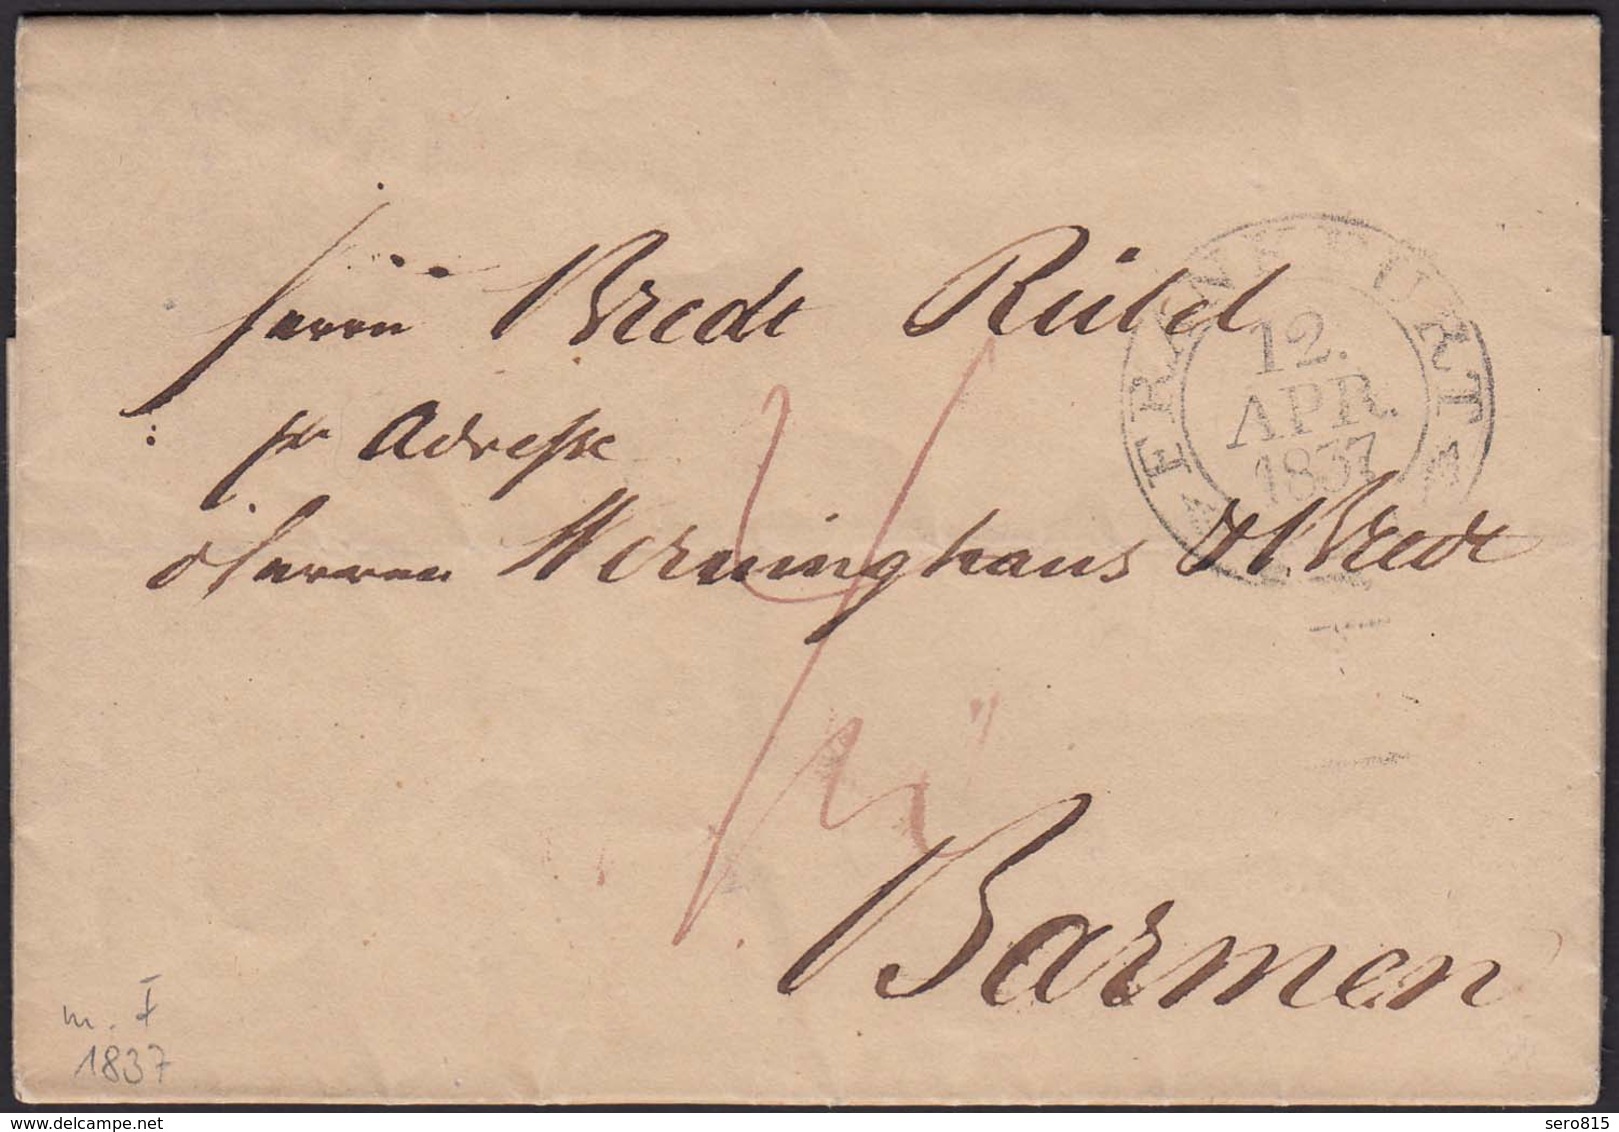 Herrn Bredt Rübel
FRANKFURT
12.
APR.
1837
pr Adresse
Herren Werninghaus & Bredt
Barmen
m. I
1837
delcampe.net
sero815